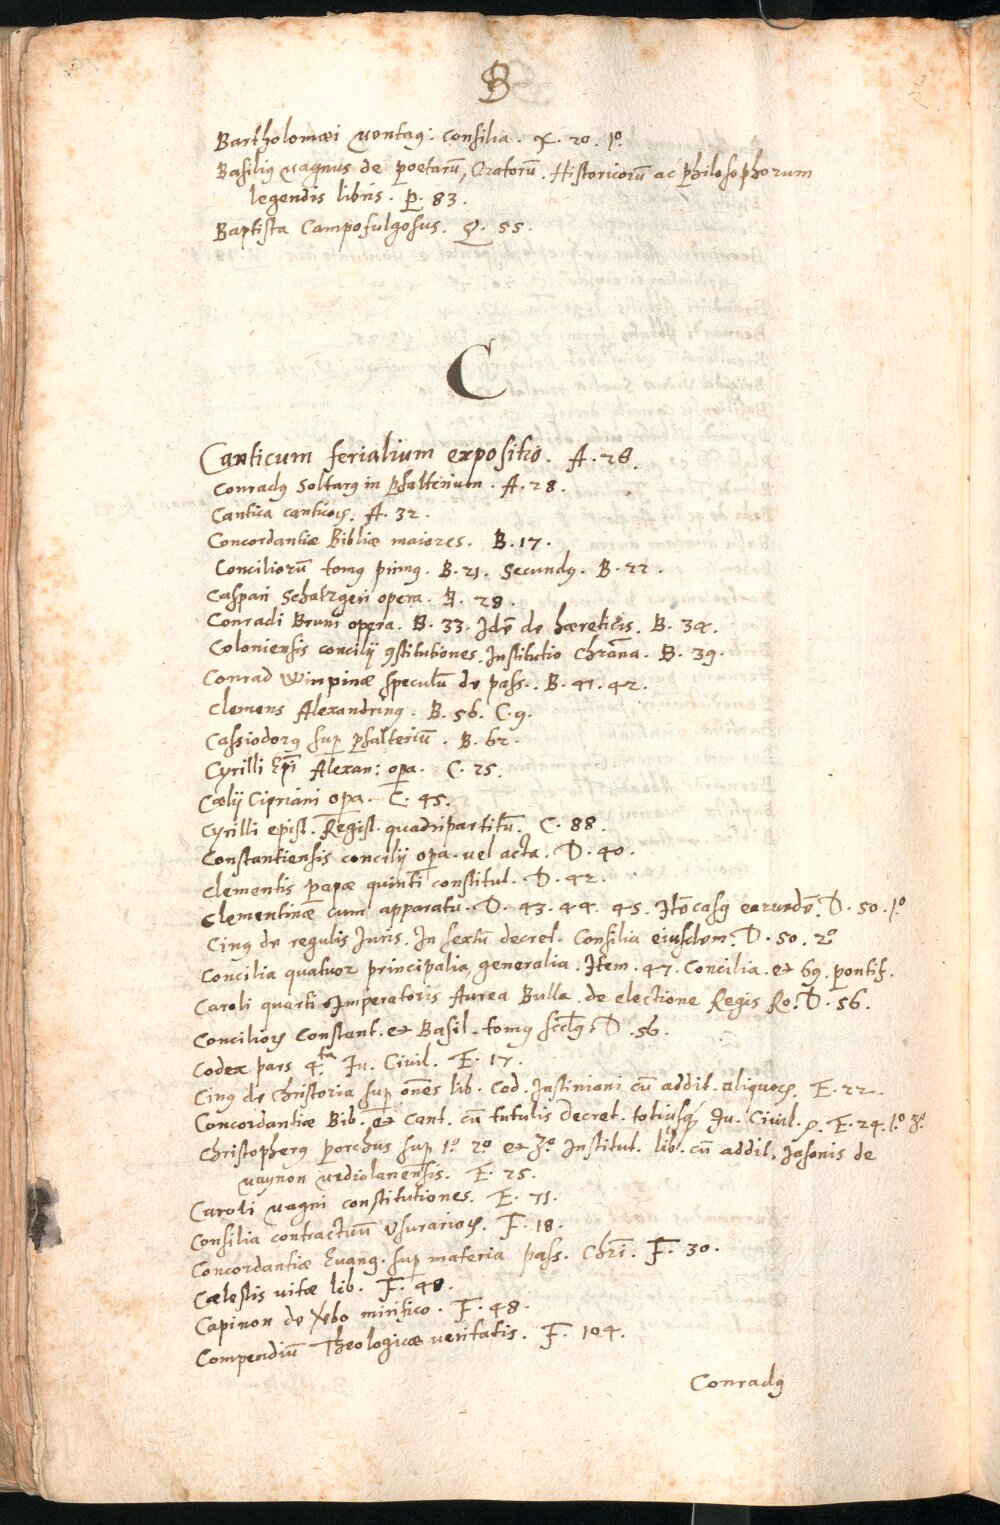 B
Bartholomæi Montag: Consilia. X. 20. 1º.
Basiliꝰ Magnus de poetarū, Oratorū. Historicorū ac philosophorum
legendis libris. P. 83.
Baptista Campofulgosus. Q. 55.
C
Canticum ferialium expositio. A. 28.
Conradꝰ Soltaꝰ in psalterium. A. 28.
Cantica canticoꝝ. A. 32.
Concordantiæ Bibliæ maiores. B. 17.
Conciliorū tomꝰ primꝰ. B. 21. Secundꝰ. B. 22.
Caspari Schatzgeri opera. B. 28.
Conradi Bruni opera. B. 33. Idē de hæreticis. B. 34.
Coloniensis concilij ꝯstitutiones. Institutio Chrāna. B. 39.
Conrad Wimpinæ speculū de pass. B. 41. 42.
Clemens Alexandrinꝰ. B. 56. C. 9.
Cassiodorꝰ sup psalteriū. B. 62.
Cyrilli Epī Alexan: opa. C. 25.
Cælij Cipriani opa. C. 45.
Cyrilli epist. Regist. quadripartitū. C. 88.
Constantiensis concilij opa. vel acta. D. 40.
Clementis papæ quinti constitut. D. 42.
Clementinæ cum apparatu. D. 43. 44. 45. Itē casꝰ earundē. D. 50. 1º
Cinꝰ de regulis Juris. In sextū decret. Consilia eiusdem. D. 50. 2º
Concilia quatuor principalia, generalia. Item. 47. Concilia. et 69. pontif.
Caroli quarti Imperatoris Aurea Bulla. de electione Regis Ro. D. 56.
Concilioꝝ Constant. et Basil. tomꝰ scdꝰ. D. 56.
Codex pars 4.ta Ju. Civil. E. 17.
Cinꝰ de Christoria sup oēs lib. Cod. Justiniani cū addit. aliquoꝝ. E. 22.
Concordantiæ Bib. et Cant. cū tutulis decret. totiusq Ju. Civil. E. 24. 1º 3º
Christopherꝰ porchus sup 1º 2º et 3º Institut. lib. cū addit. Jasonis de
Maynon Mediolanensis. E. 25.
Caroli Magni constitutiones. E. 71.
Consilia contractuū Usurarioꝝ. F. 18.
Concordantiæ Evang. sup materia pass. Chrī. F. 30.
Cælestis vitæ lib. F. 48.
Capinon de Verbo mirifico. F. 48.
Compendiū Theologicæ veritatis. F. 104.
Conradꝰ